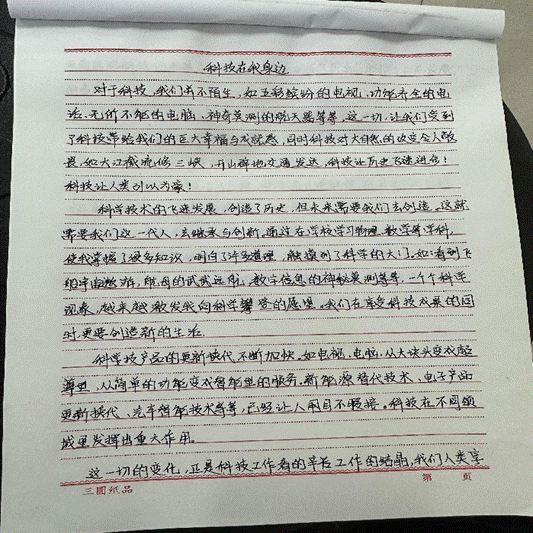 科技在我身边
对于科技,我们并不陌生,如五彩缤纷的电视,功能齐全的电
话,无所不能的电脑,神奇莫测的航天器等等,这一切,让我们感到
了科技带给我们的巨大幸福与成就感,同时科技对大自然的改变令人敬
畏,如大江截流修三峡,开山辟地交通发达,科技让历史飞速进步!
科技让人类引以为豪!
科学技术的飞速发展,创造了历史,但未来需要我们去创造。这就
需要我们这一代人,去继承与创新,通过在学校学习物理,数学等学科,
使我掌握了很多知识,明白了许多道理,触摸到了科学的大门,如:看到飞
船宇宙遨游,航母的武武远航,数字信息的神秘莫测等等,一个个科学
现象,越来越激发我向科学攀登的愿望。我们在享受科技成果的同
时,更要创造新的生活
科学技产品的更新换代,不断加快,如电视,电脑,从大块头变成超
薄型,从简单的功能变成智能型的服务,新能源替代技术,电子产品
更新换代,汽车智能技术等等,已经让人用目不暇接。科技在不同领
域里发挥出重大作用。
这一切的变化,正是科技工作者的辛苦工作的结晶,我们人类享
三圆纸品
第 页